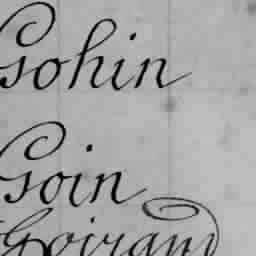 Gohin
Goin
Goirand